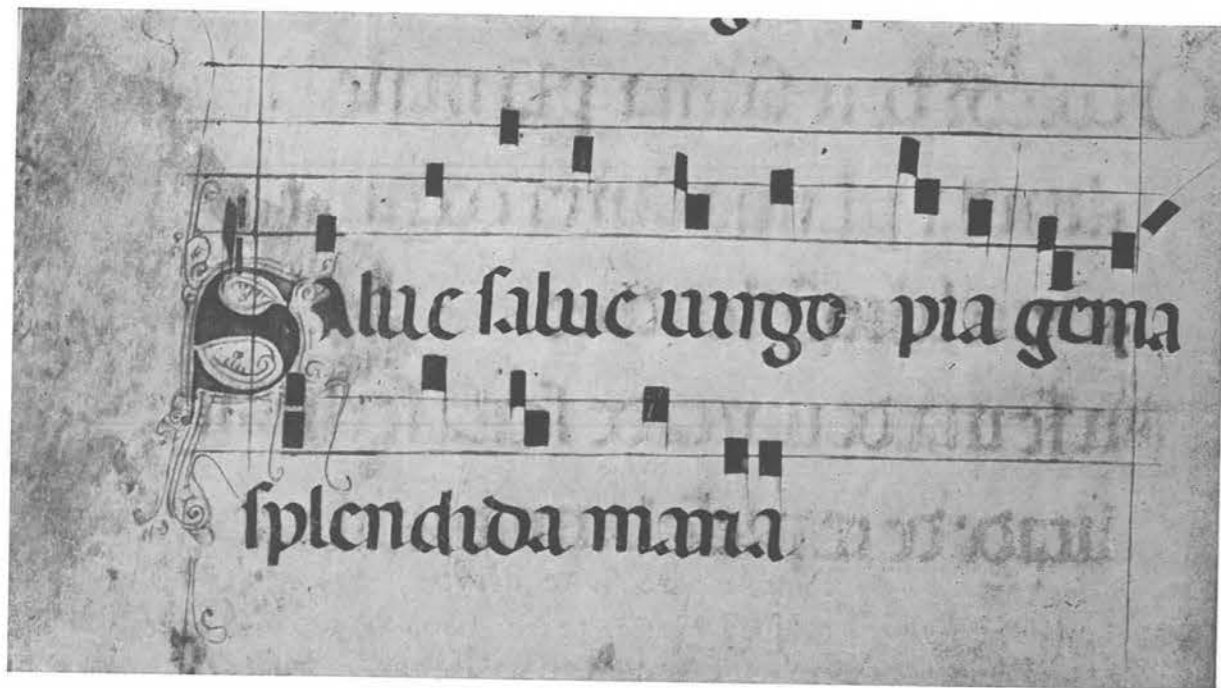 Salue salue uirgo pia gema
splendida maria